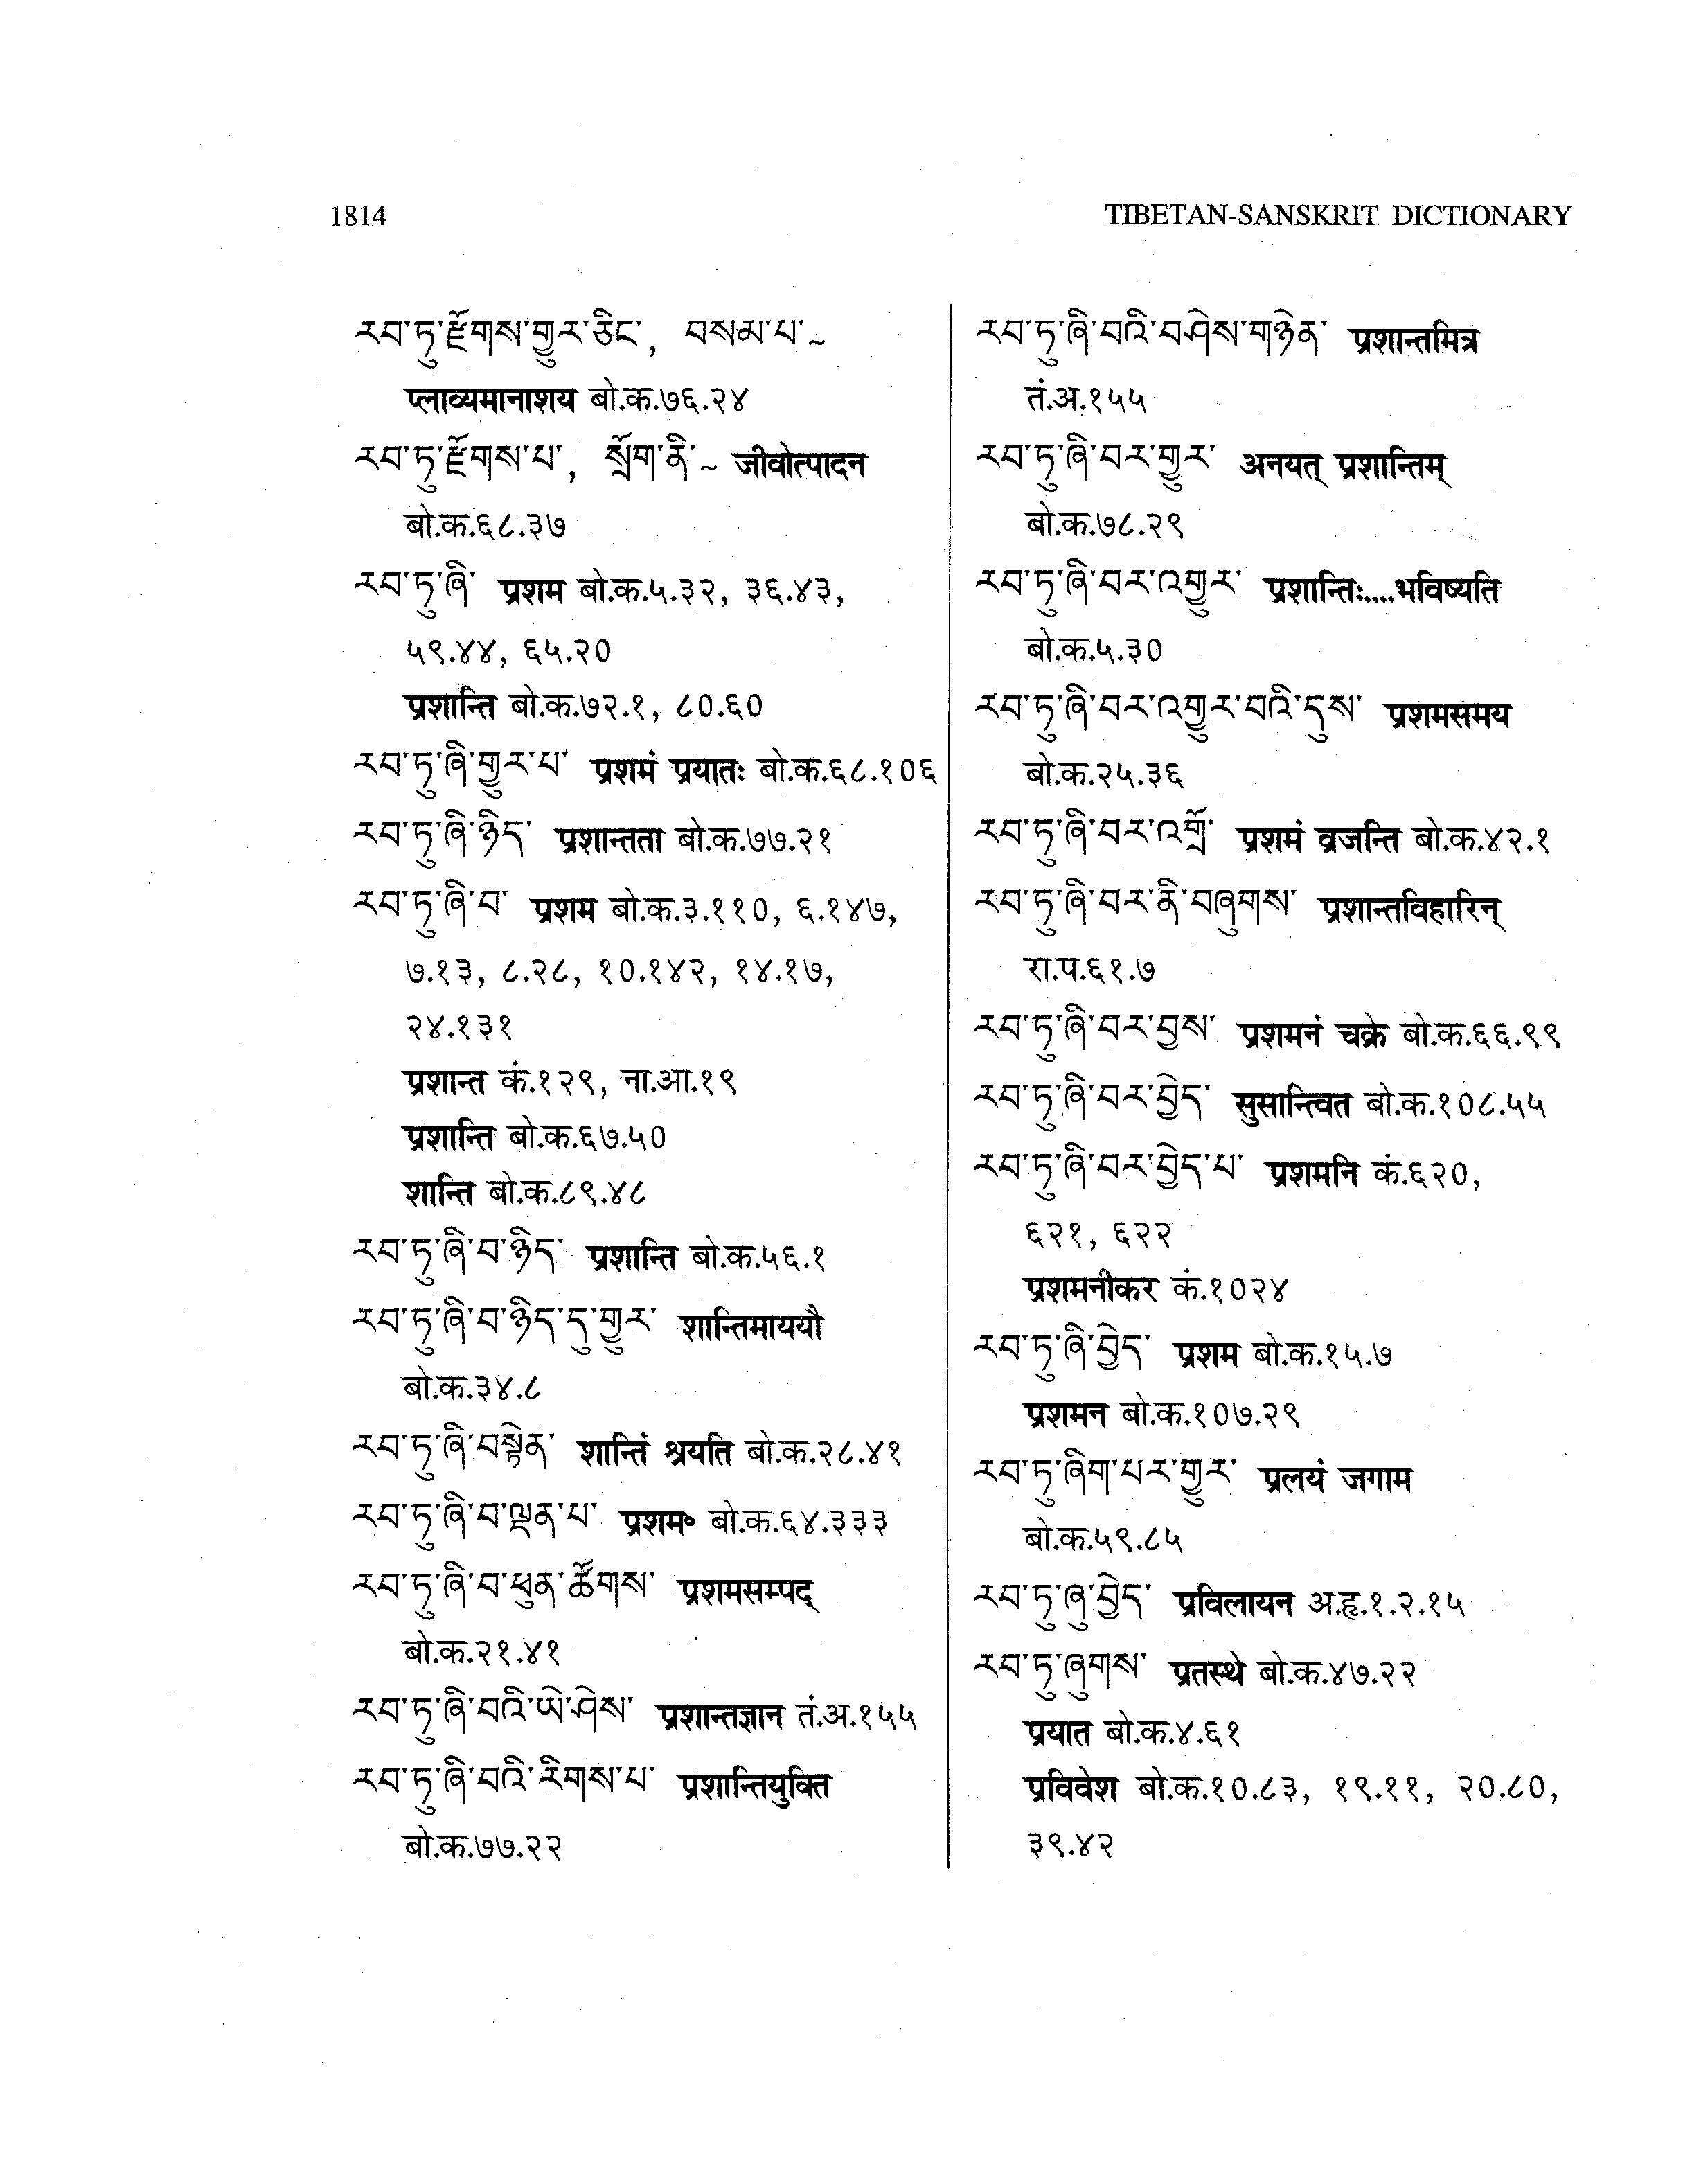 1814
TIBETAN-SANSKRIT DICTIONARY
རབ་ཏུ་རྫོགས་གྱུར་ཅིང་, བསམ་པ་~
प्लाव्यमानाशय बो.क.७६.२४
རབ་ཏུ་རྫོགས་པ་, སྲོག་ནི་~ जीवोत्पादन
बो.क.६८.३७
རབ་ཏུ་ཞི་ प्रशम बो.क.५.३२, ३६.४३,
५९.४४, ६५.२०
प्रशान्ति बो.क.७२.१, ८०.६०
རབ་ཏུ་ཞི་གྱུར་པ་ प्रशमं प्रयातः बो.क.६८.१०६
རབ་ཏུ་ཞི་ཉིད་ प्रशान्तता बो.क.७७.२१
རབ་ཏུ་ཞི་བ་ प्रशम बो.क.३.११०, ६.१४७,
७.१३, ८.२८, १०.१४२, १४.१७,
२४.१३१
प्रशान्त कं.१२९, ना.आ.१९
प्रशान्ति बो.क.६७.५०
शान्ति बो.क.८९.४८
རབ་ཏུ་ཞི་བ་ཉིད་ प्रशान्ति बो.क.५६.१
རབ་ཏུ་ཞི་བ་ཉིད་དུ་གྱུར་ शान्तिमाययौ
बो.क.३४.८
རབ་ཏུ་ཞི་བསྟེན་ शान्तिं श्रयति बो.क.२८.४१
རབ་ཏུ་ཞི་བ་ལྡན་པ་ प्रशम॰ बो.क.६४.३३३
རབ་ཏུ་ཞི་བ་ཕུན་ཚོགས་ प्रशमसम्पद्
बो.क.२१.४१
རབ་ཏུ་ཞི་བའི་ཡེ་ཤེས་ प्रशान्तज्ञान तं.अ.१५५
རབ་ཏུ་ཞི་བའི་རིགས་པ་ प्रशान्तियुक्ति
बो.क.७७.२२
རབ་ཏུ་ཞི་བའི་བཤེས་གཉེན་ प्रशान्तमित्र
तं.अ.१५५
རབ་ཏུ་ཞི་བར་གྱུར་ अनयत् प्रशान्तिम्
बो.क.७८.२९
རབ་ཏུ་ཞི་བར་འགྱུར་ प्रशान्तिः....भविष्यति
बो.क.५.३०
རབ་ཏུ་ཞི་བར་འགྱུར་བའི་དུས་ प्रशमसमय
बो.क.२५.३६
རབ་ཏུ་ཞི་བར་འགྲོ་ प्रशमं व्रजन्ति बो.क.४२.१
རབ་ཏུ་ཞི་བར་ནི་བཞུགས་ प्रशान्तविहारिन्
रा.प.६१.७
རབ་ཏུ་ཞི་བར་བྱས་ प्रशमनं चक्रे बो.क.६६.९९
རབ་ཏུ་ཞི་བར་བྱེད་ सुसान्त्वित बो.क.१०८.५५
རབ་ཏུ་ཞི་བར་བྱེད་པ་ प्रशमनि कं.६२०,
६२१, ६२२
प्रशमनीकर कं.१०२४
རབ་ཏུ་ཞི་བྱེད་ प्रशम बो.क.१५.७
प्रशमन बो.क.१०७.२९
རབ་ཏུ་ཞིག་པར་གྱུར་ प्रलयं जगाम
बो.क.५९.८५
རབ་ཏུ་ཞུ་བྱེད་ प्रविलायन अ.हृ.१.२.१५
རབ་ཏུ་ཞུགས་ प्रतस्थे बो.क.४७.२२
प्रयात बो.क.४.६१
प्रविवेश बो.क.१०.८३, १९.११, २०.८०,
३९.४२